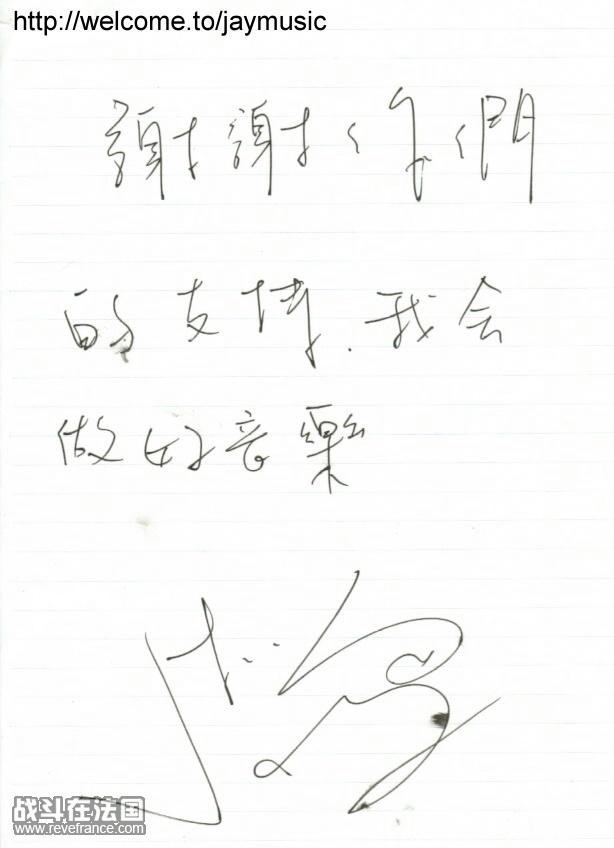 http://welcome.to/jaymusic
謝謝你們
的支持.我会
做好音樂
战斗在法国
www.revefrance.com